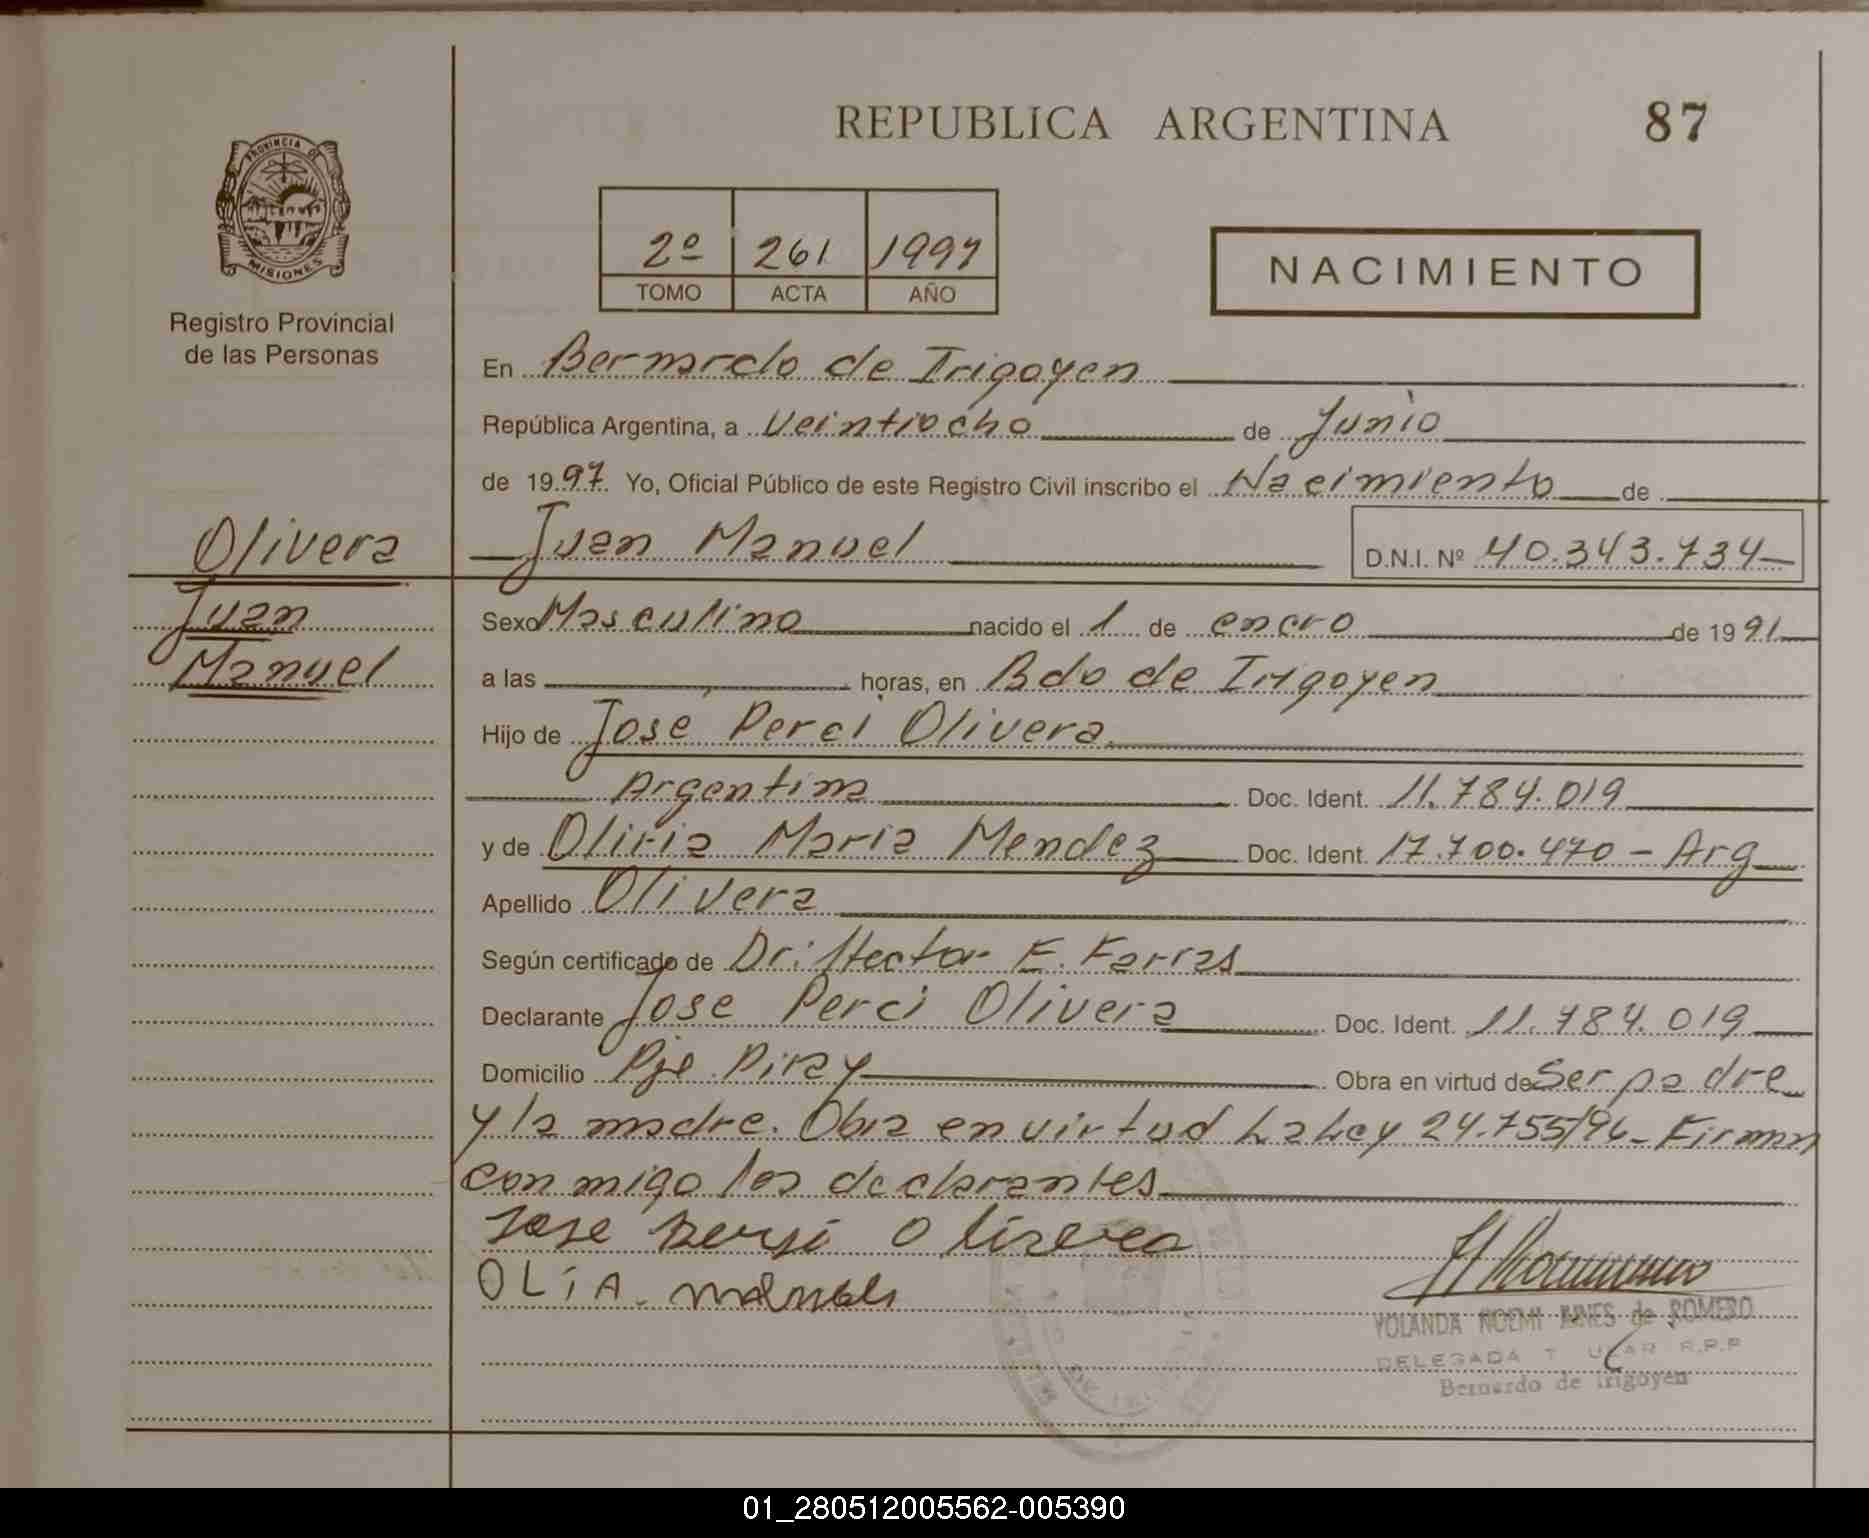 REPUBLICA ARGENTINA
87
PROVINCIA DE
MISIONES
Registro Provincial
de las Personas
2º 261 1997
TOMO ACTA AÑO
NACIMIENTO
En Bernardo de Irigoyen
República Argentina, a Veintiocho de Junio
de 1997 Yo, Oficial Público de este Registro Civil inscribo el Nacimiento de
Olivera
Juan
Manuel
Juan Manuel D.N.I. Nº 40.343.734
Sexo Masculino nacido el 1 de enero de 1991
a las horas, en Bdo de Irigoyen
Hijo de José Perci Olivera
Argentina Doc. Ident. 11.784.019
y de Oliria Maria Mendez Doc. Ident. 17.700.470 - Arg
Apellido Olivera
Según certificado de Dr: Hector E. Farras
Declarante Jose Perci Olivera Doc. Ident. 11.784.019
Domicilio Pje Piray Obra en virtud de Ser padre
y la madre. Obra en virtud La Ley 24.755/96- Firman
conmigo los declarantes
Jose
OLIA
YOLANDA NOEMI de ROMERO
DELEGADA R.P.P
Bernardo de Irigoyen
01_280512005562-005390